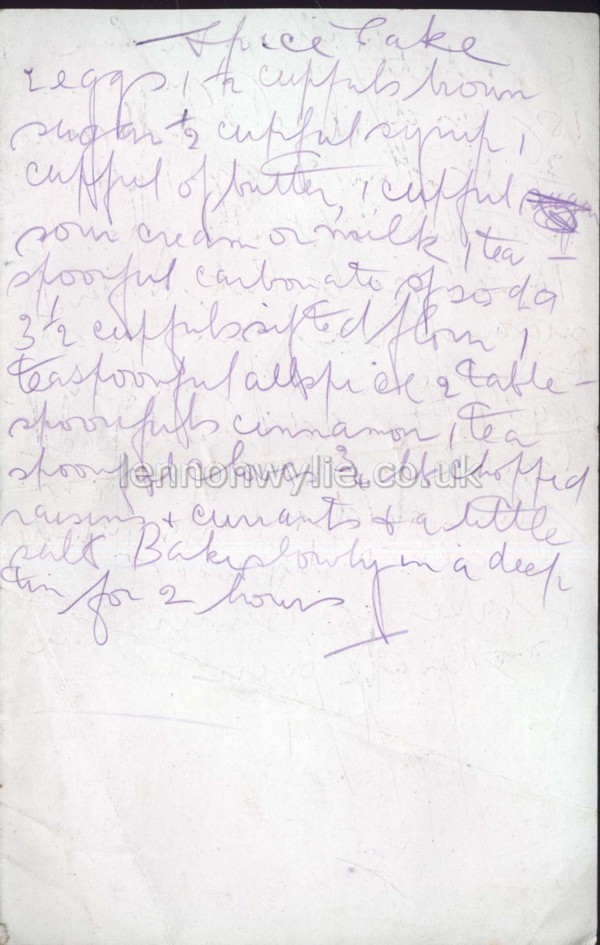 Spice Cake
2 eggs 1 ½ cupfuls brown
sugar ½ cupful syrup 1
cupful of butter, 1 cupful
sour cream or milk 1 tea
spoonful carbonate of soda
3 ½ cupfuls sifted flour 1
teaspoonful allspice 2 table-
spoonfuls cinnamon 1 tea
spoonful cloves ¾ lb chopped
raisins + currants + a little
salt Bake slowly in a deep
tin for 2 hours
lennonwylie.co.uk